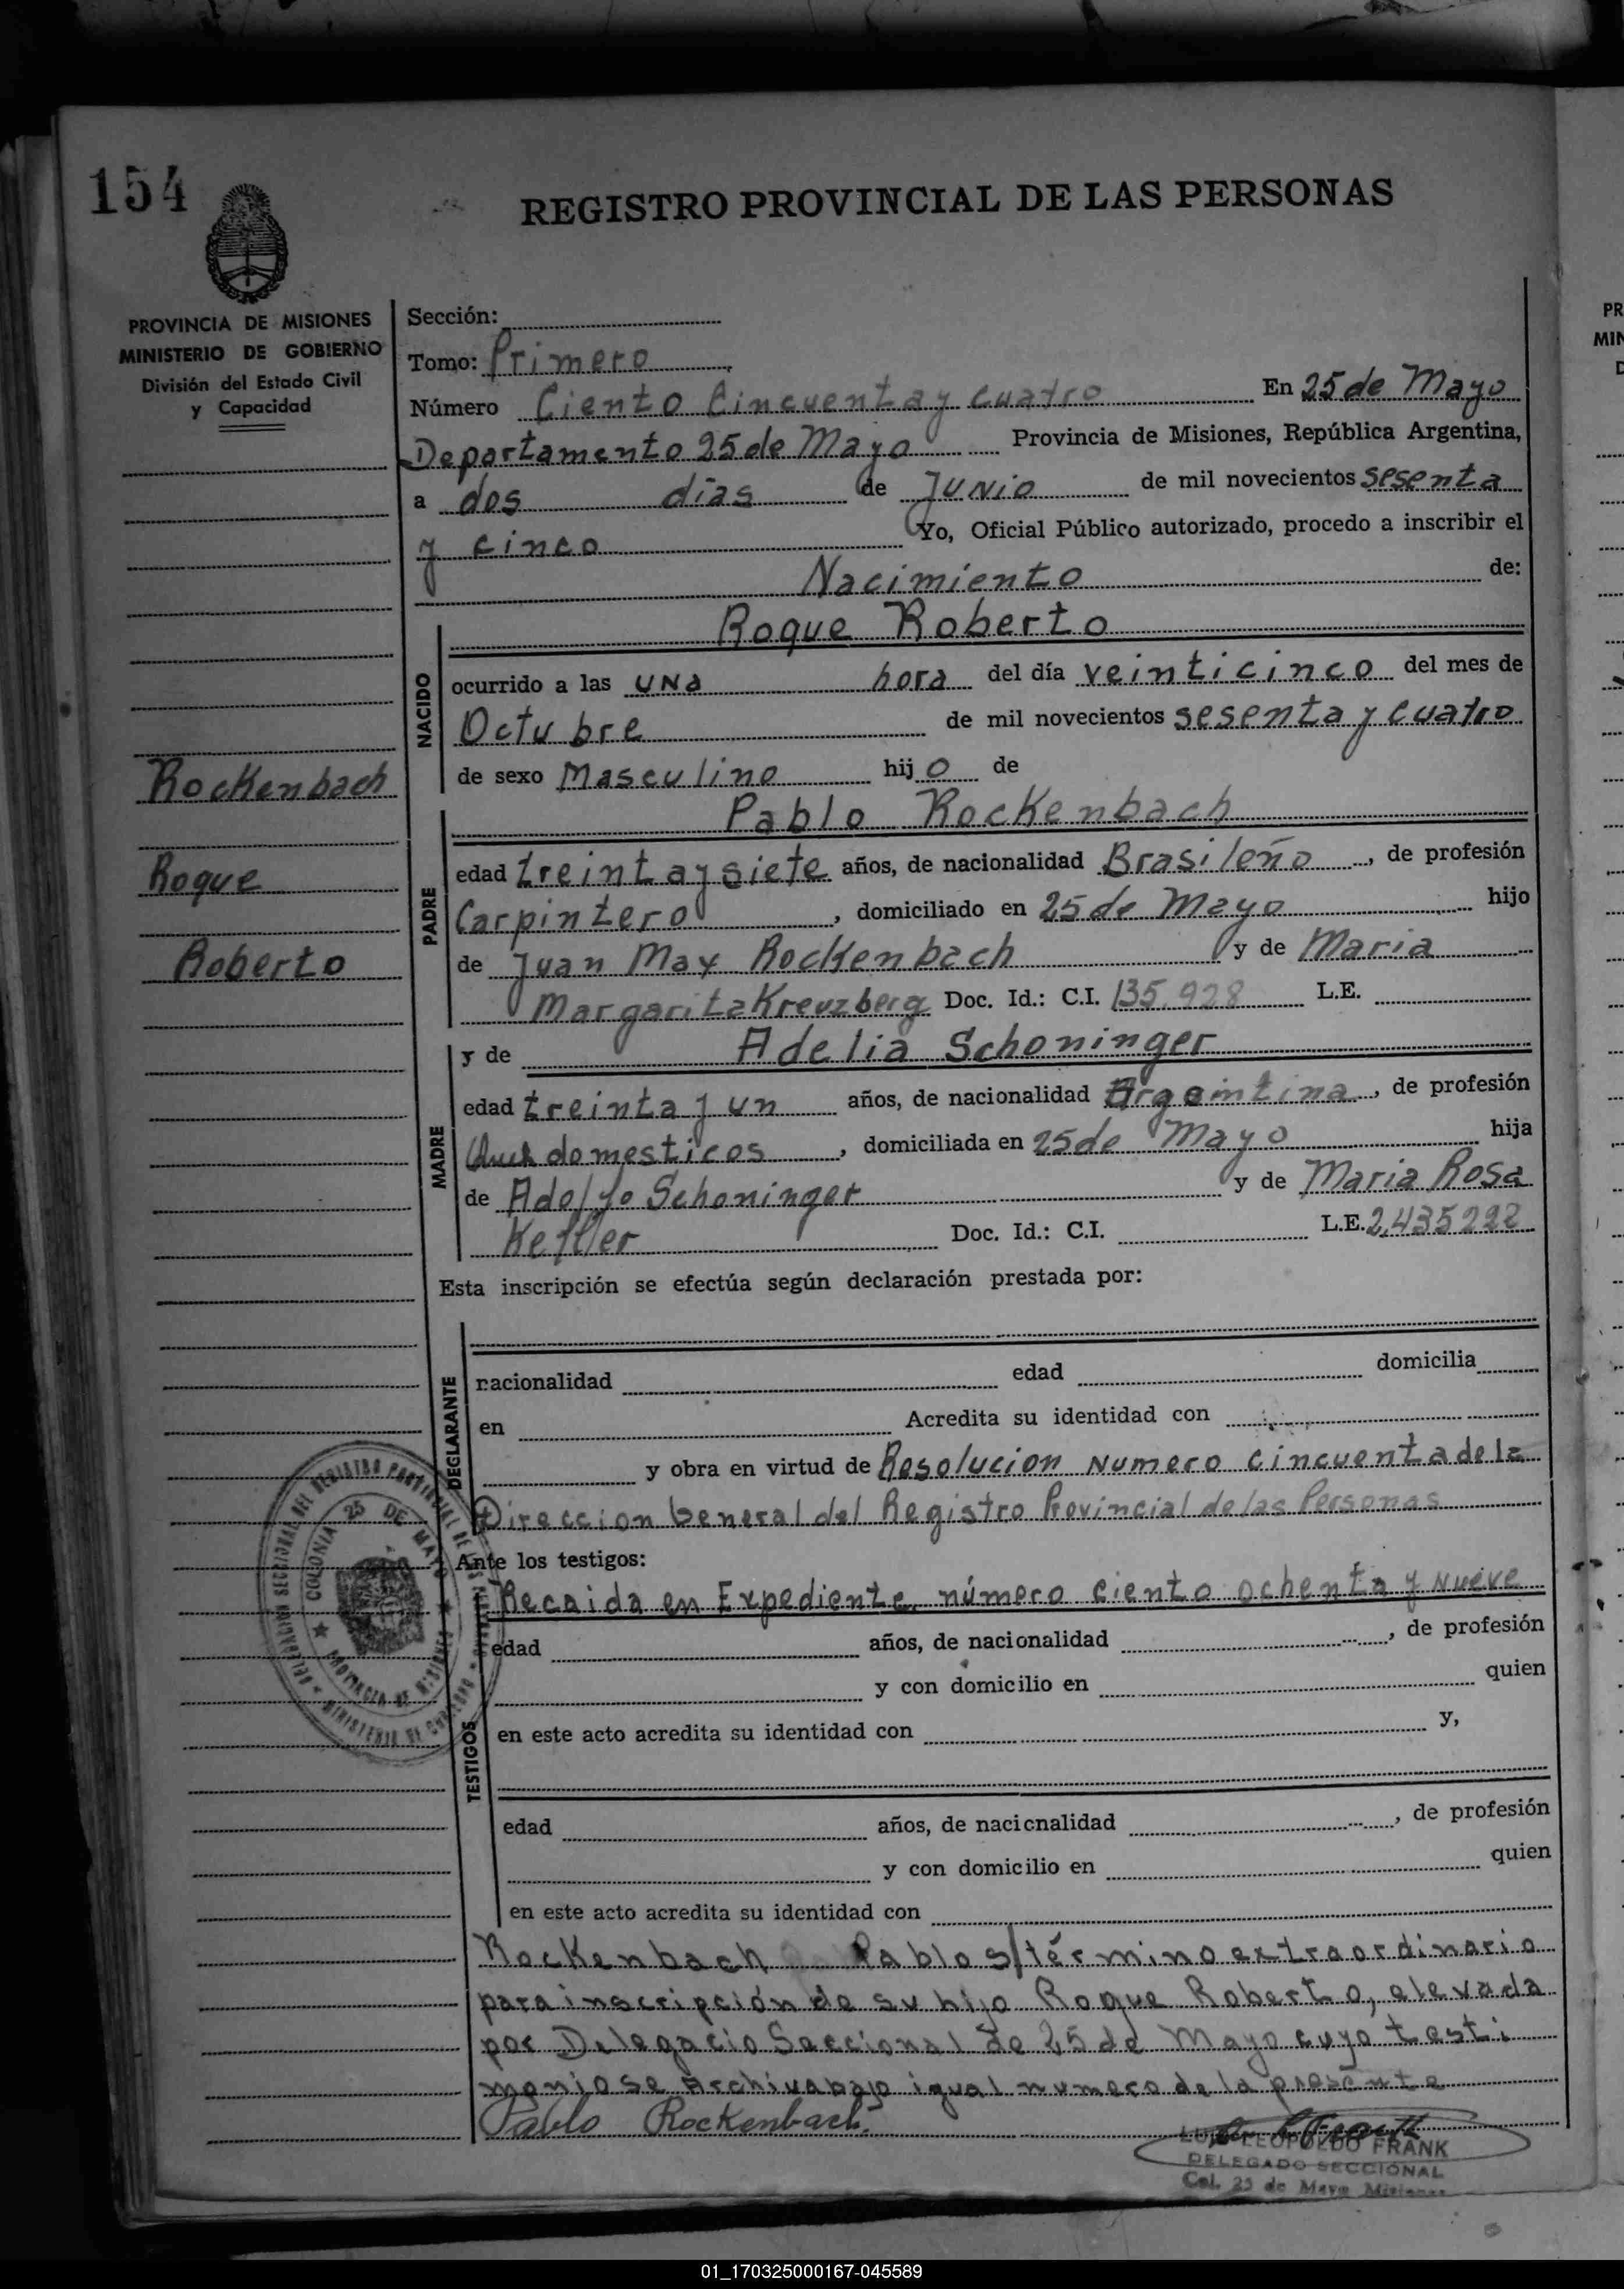 154
REGISTRO PROVINCIAL DE LAS PERSONAS
PROVINCIA DE MISIONES
MINISTERIO DE GOBIERNO
División del Estado Civil
y Capacidad
Rockenbach
Roque
Roberto
Sección:
Tomo: Primero
Número Ciento Cincuenta y cuatro En 25 de Mayo
Departamento 25 de Mayo Provincia de Misiones, República Argentina,
a dos días de Junio de mil novecientos sesenta
y cinco Yo, Oficial Público autorizado, procedo a inscribir el
Nacimiento de:
NACIDO
Roque Roberto
ocurrido a las una hora del día veinticinco del mes de
Octubre de mil novecientos sesenta y cuatro
de sexo Masculino hijo de
PADRE
Pablo Rockenbach
edad treinta y siete años, de nacionalidad Brasileño, de profesión
Carpintero, domiciliado en 25 de Mayo hijo
de Juan Max Rockenbach y de Maria
Margarita Kreuzberg Doc. Id.: C.I. 135.928 L.E.
MADRE
y de Adelia Schoninger
edad treinta y un años, de nacionalidad Argentina, de profesión
domesticos, domiciliada en 25 de Mayo hija
de Adolfo Schoninger y de Maria Rosa
Doc. Id.: C.I. L.E.
Esta inscripción se efectúa según declaración prestada por:
DECLARANTE
nacionalidad edad domicilia
en Acredita su identidad con
y obra en virtud de Resolucion Numero cincuenta de la
Direccion General del Registro Provincial de las Personas
Ante los testigos:
Recaida en Expediente número ciento ochenta y nueve
TESTIGOS
edad años, de nacionalidad, de profesión
y con domicilio en quien
en este acto acredita su identidad con y,
edad años, de nacionalidad, de profesión
y con domicilio en quien
en este acto acredita su identidad con
Rockenbach Pablo s/término extraordinario
para inscripción de su hijo Roque Roberto, elevada
por Delegacio Seccional de 25 de Mayo cuyo testi
monio se Archiva bajo igual numero de la presente
Pablo Rockenbach.
LUIS LEOPOLDO FRANK
DELEGADO SECCIONAL
Col. 25 de Mayo Misiones
COLONIA 25 DE MAYO
PROVINCIA DE MISIONES
01_170325000167-045589